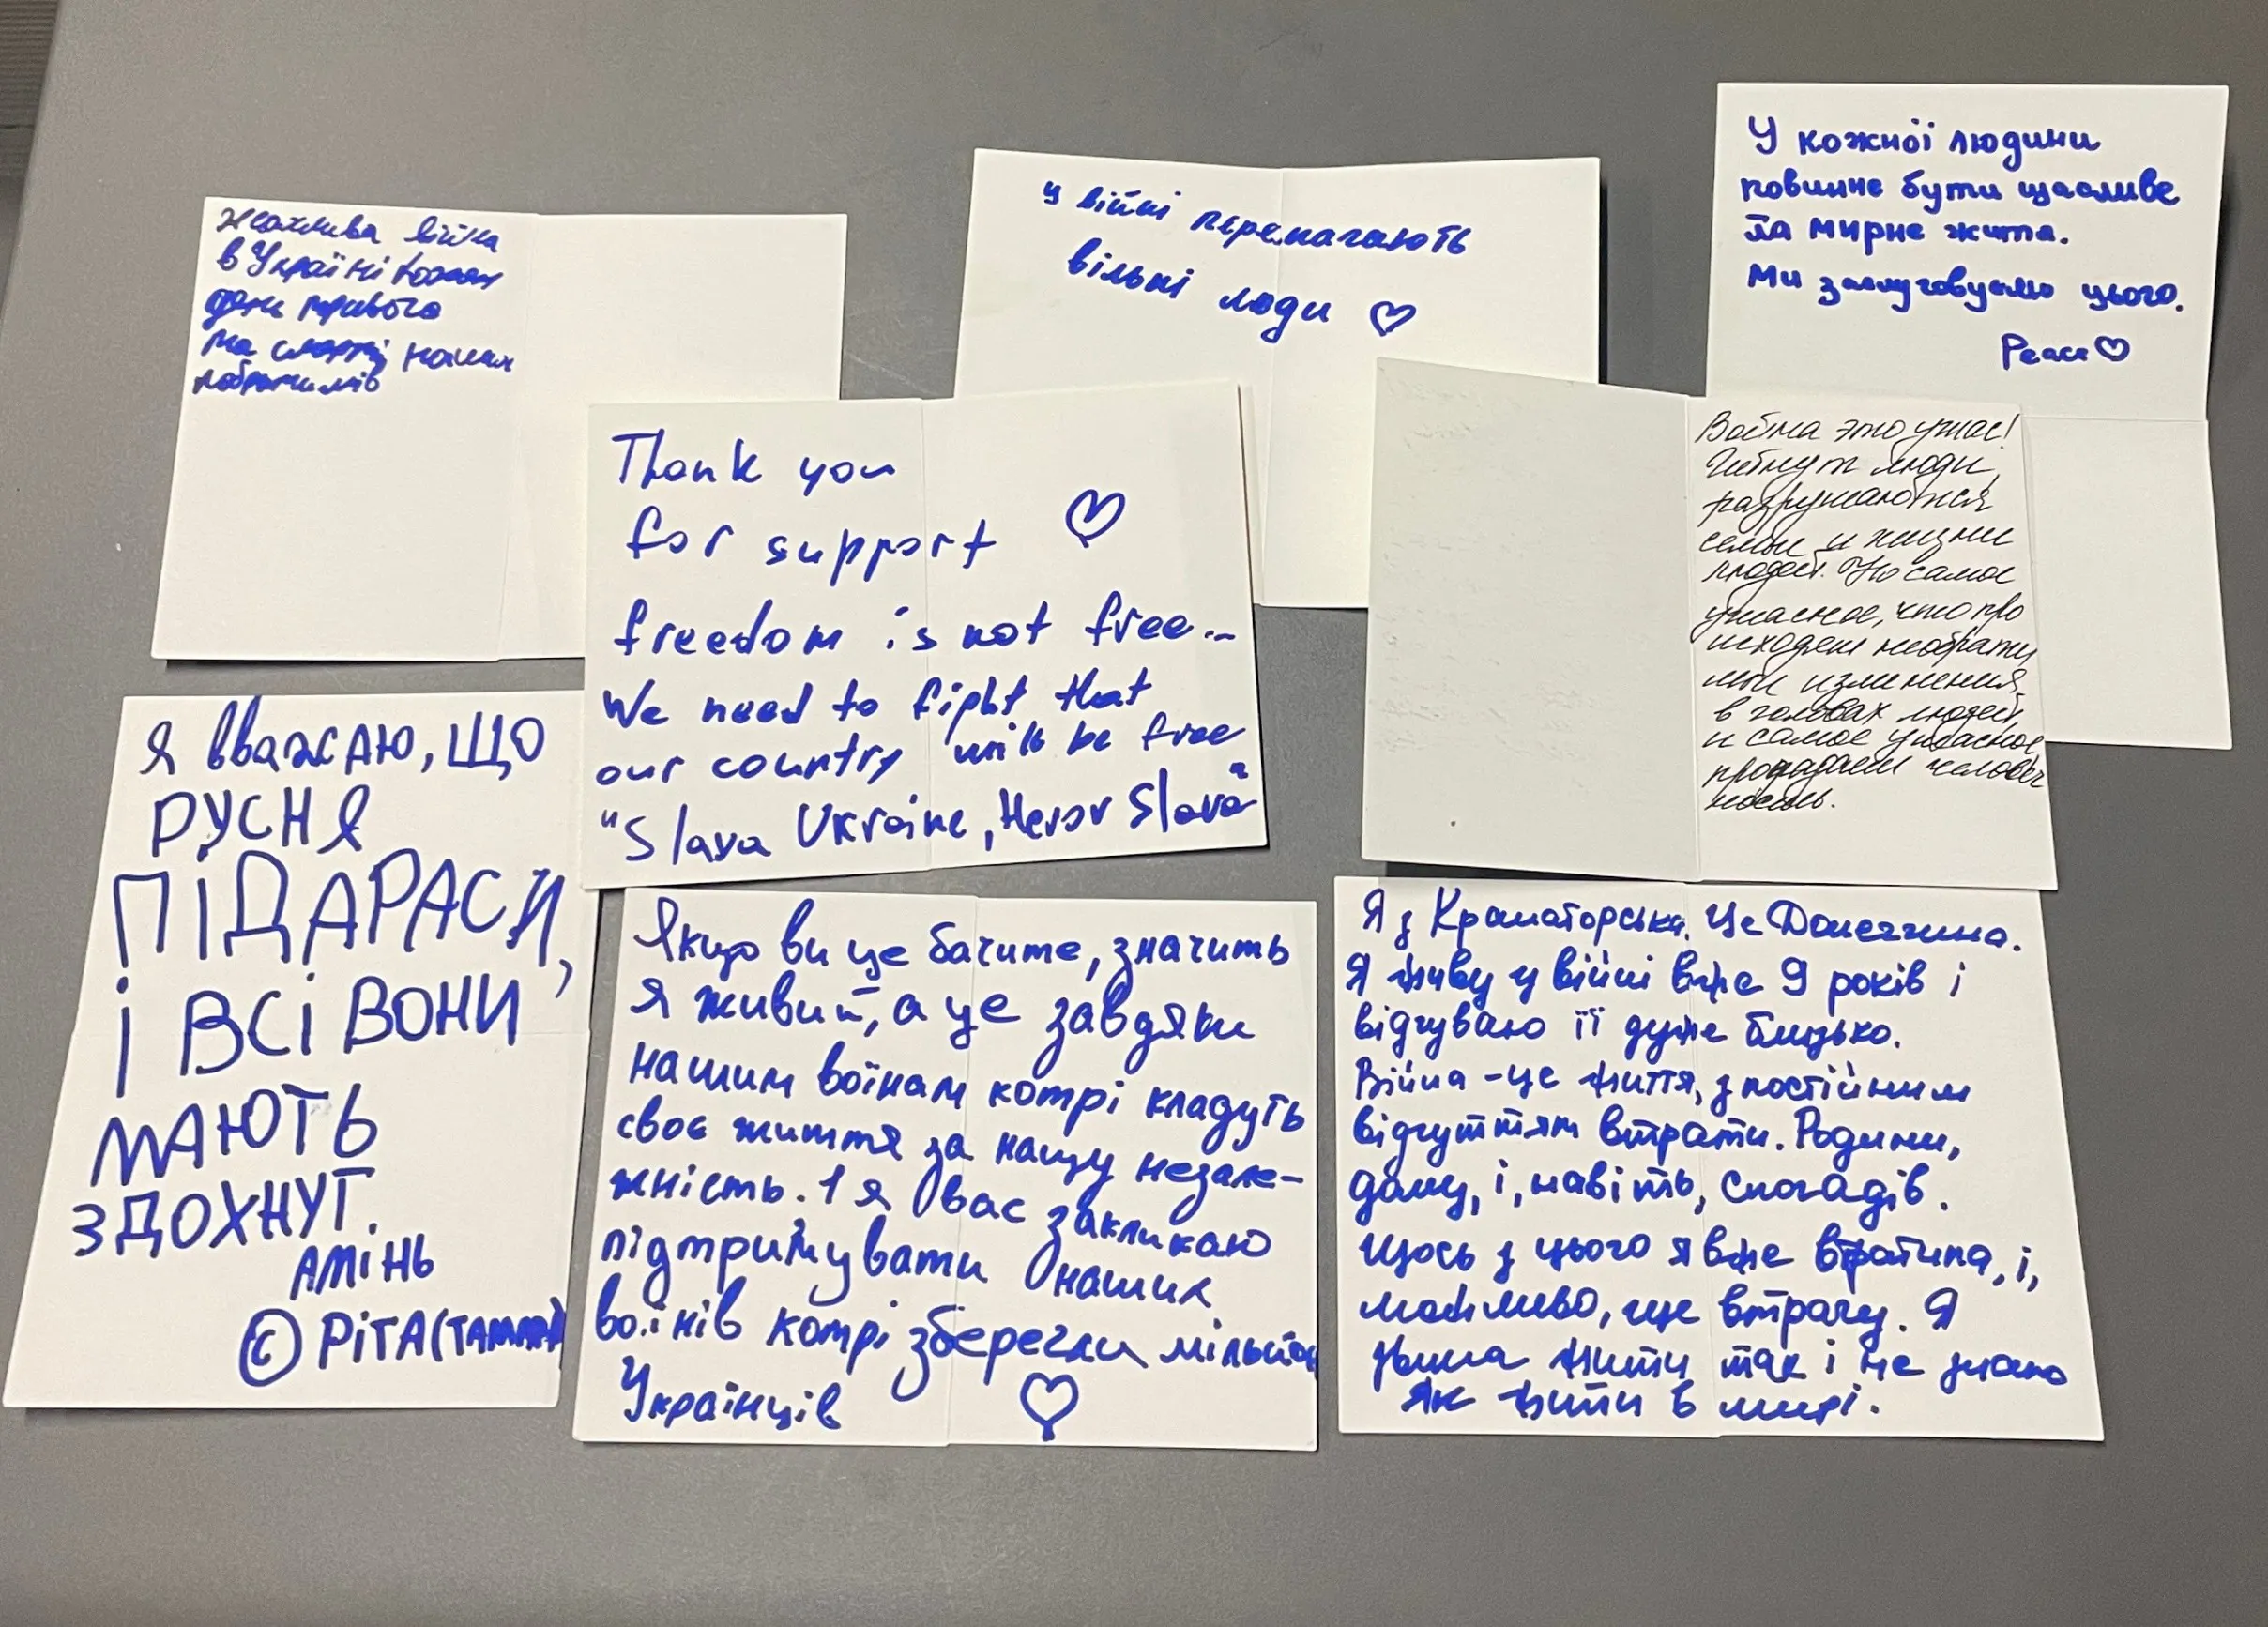 Жахлива війна
в Україні кожен
день тривога
на смерті наших
побратимів
у війні перемагають
вільні люди
У кожної людини
повинне бути щасливе
та мирне життя.
Ми заслуговуємо цього.
Peace
Thank you
for support
freedom is not free...
We need to fight that
our country will be free
"Slava Ukraine, Heror Slava"
Война это ужас!
Гибнут люди,
разрушаются
семьи и жизни
людей. Но самое
ужасное, что про
исходят необрати
мые изменения
в головах людей,
и самое ужасное
пропадает человеч
ность.
Я вважаю, що
РУСНЯ
ПІДАРАСИ,
І ВСІ ВОНИ
МАЮТЬ
ЗДОХНУТ.
АМІНЬ
© РІТА(
Якщо ви це бачите, значить
я живий, а це завдяки
нашим воїнам котрі кладуть
своє життя за нашу незале-
жність. І я вас закликаю
підтримувати наших
воїнів котрі зберегли мільйон
Українців
Я з Краматорська. Це Донеччина.
Я живу у війні вже 9 років і
відчуваю її дуже близько.
Війна - це життя, з постійним
відчуттям втрати. Родини,
дому, і, навіть, спогадів.
Щось з цього я вже втратила, і,
можливо, ще втрачу. Я
звикла жити так і не знаю
як жити в мирі.